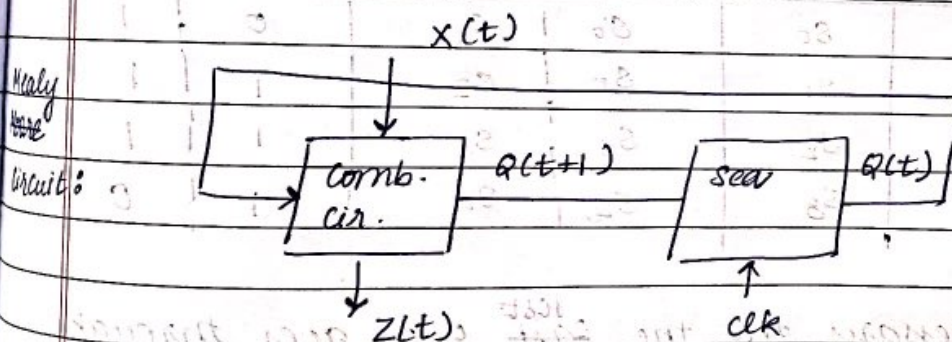 X(t)
Mealy
Circuit:
Comb. Q(t+1) seq Q(t)
cir.
Z(t) clk